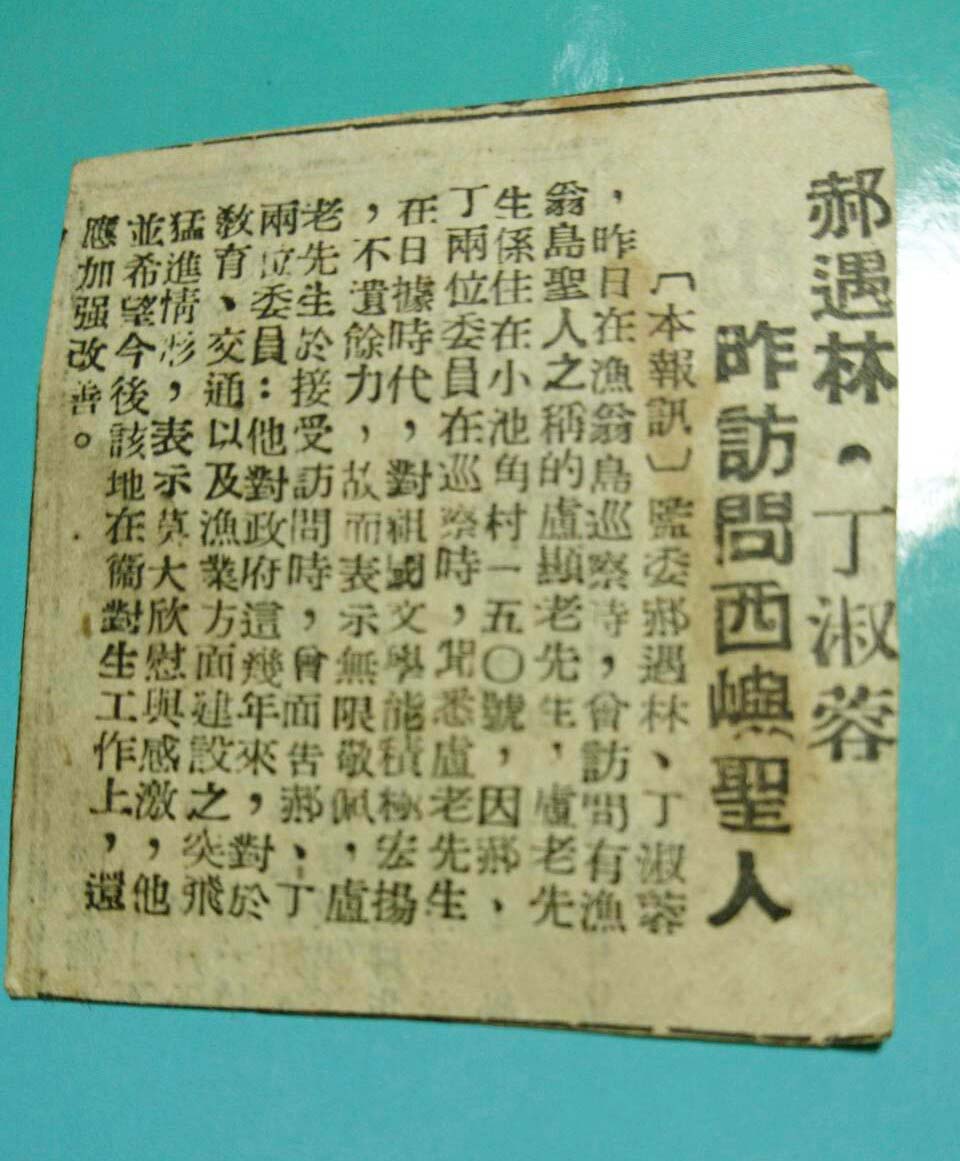 郝遇林・丁淑蓉
昨訪問西嶼聖人
〔本報訊〕監委郝遇林、丁淑蓉
，昨日在漁翁島巡察時，曾訪問有漁
翁島聖人之稱的盧顯老先生，盧老先
生係住在小池角村一五〇號，因郝、
丁兩位委員在巡察時，聞悉盧老先生
在日據時代，對祖國文學能積極宏揚
，不遺餘力，故而表示無限敬佩，盧
老先生於接受訪問時，曾面告郝、丁
兩位委員：他對政府這幾年來，對於
教育、交通以及漁業方面建設之突飛
猛進情形，表示莫大欣慰與感激，他
並希望今後該地在衞對生工作上，還
應加强改善。